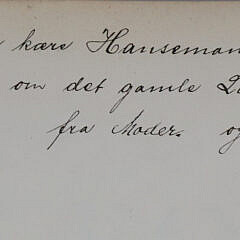 kære Hanseman
om det gamle
fra Moder.